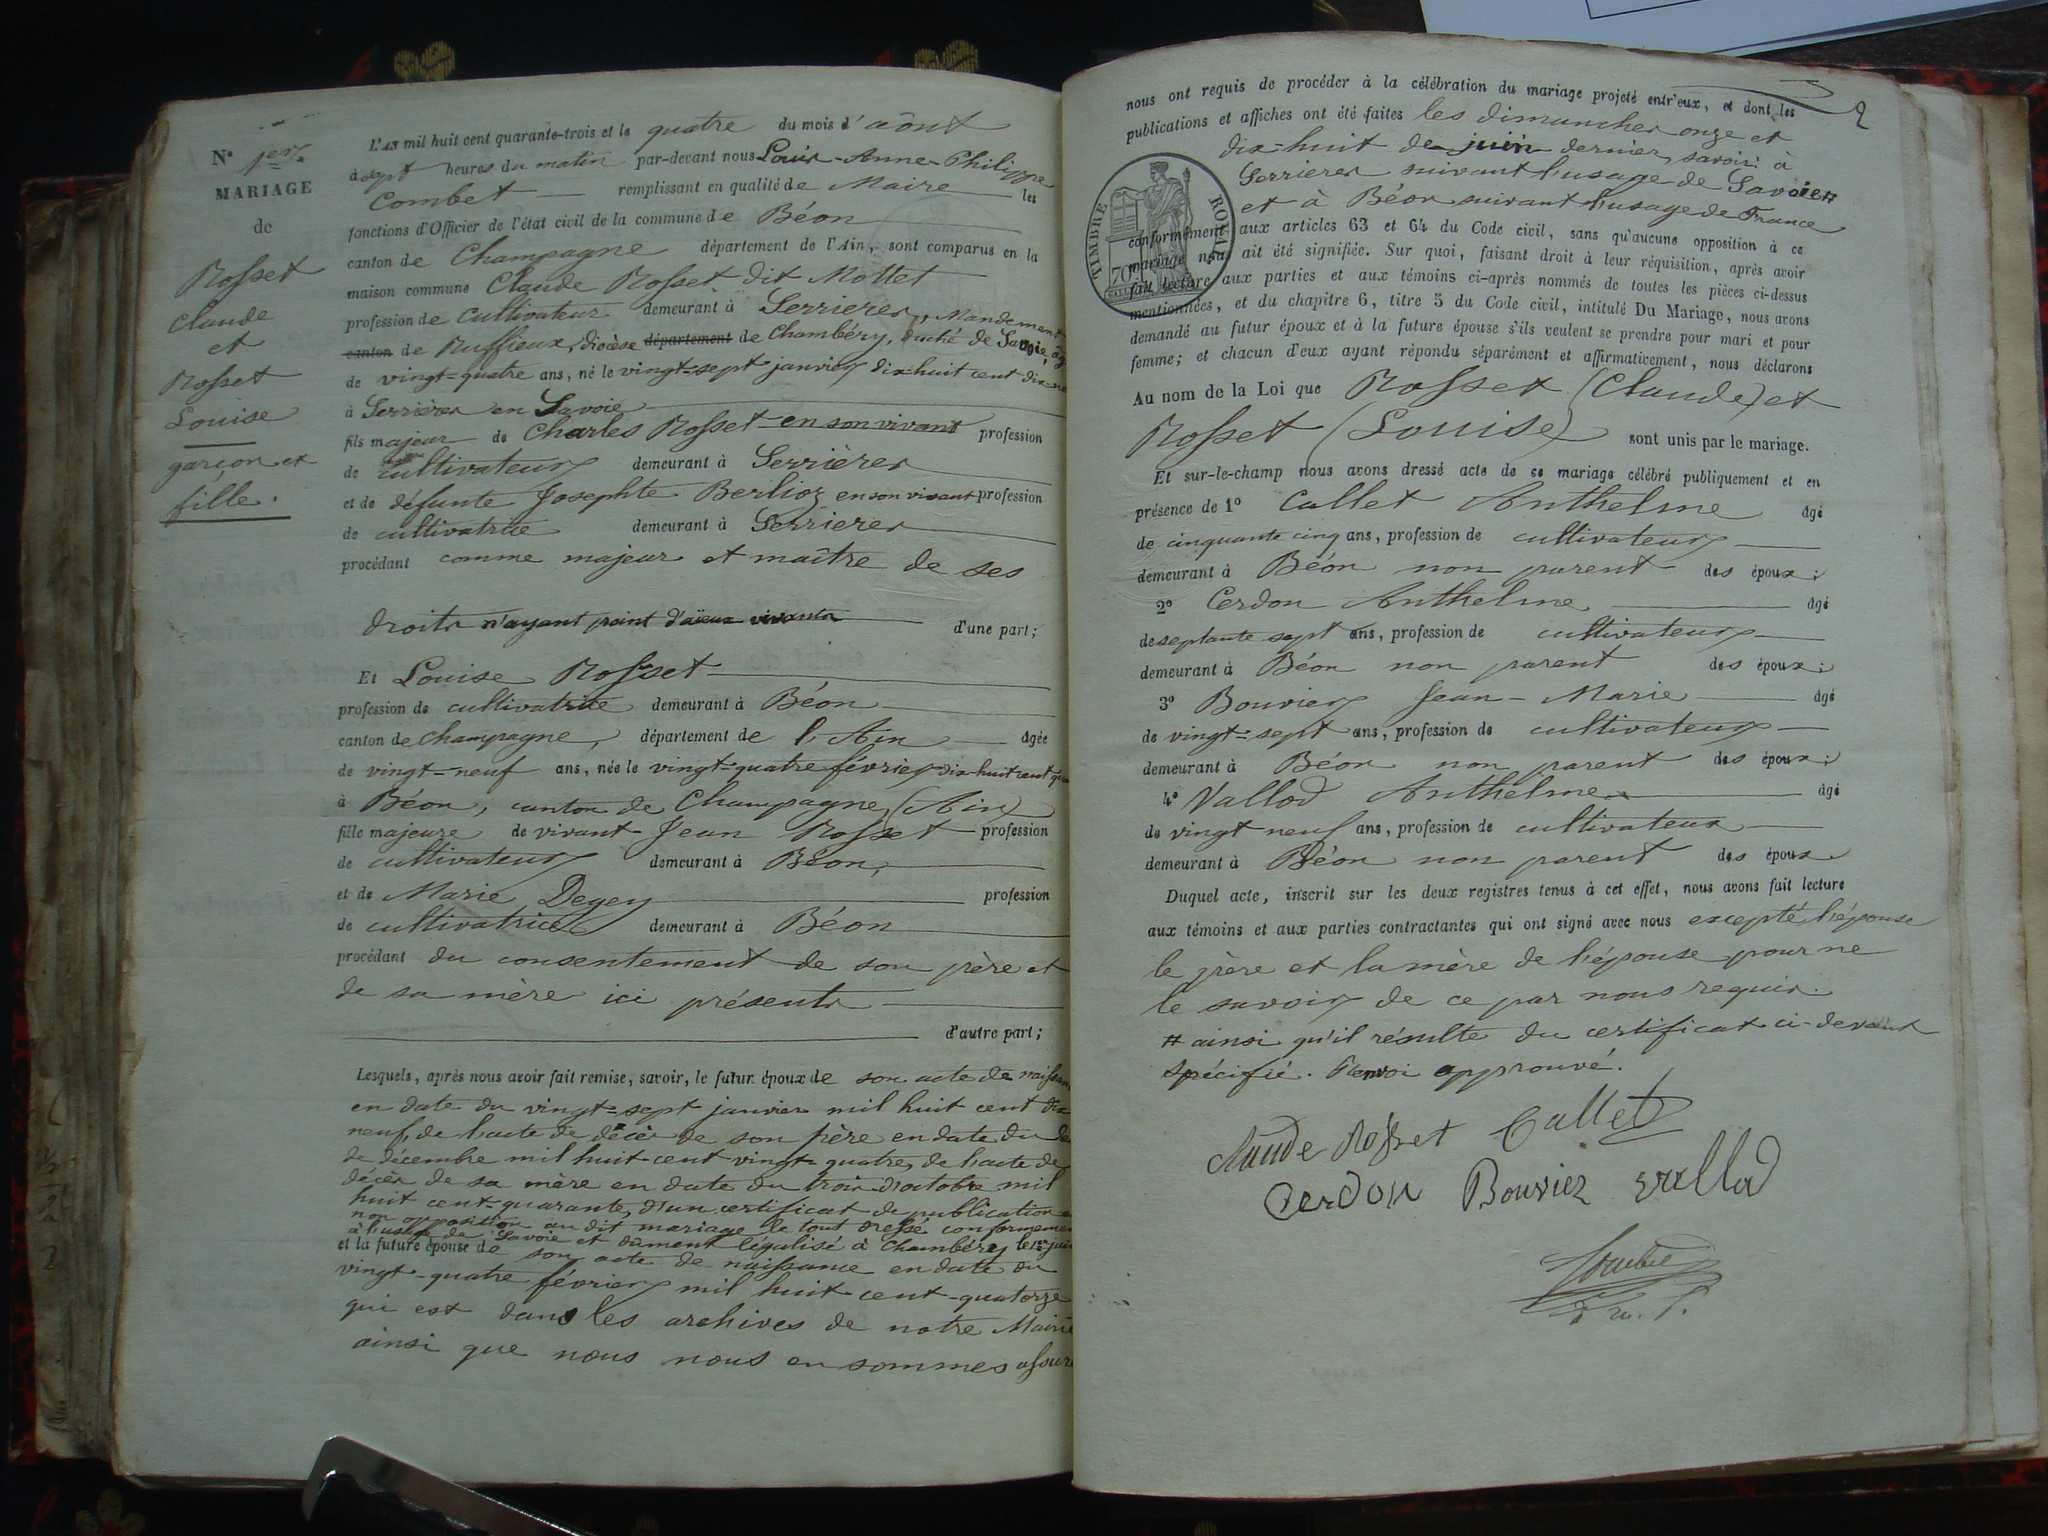 N° 1er
MARIAGE
de
Rosset
Claude
et
Rosset
Louise
garçon et
fille.
L'AN mil huit cent quarante-trois et le quatre du mois d'août
à sept heures du matin par-devant nous Louis-Anne-Philippe
Combet remplissant en qualité de Maire les
fonctions d'Officier de l'état civil de la commune de Béon
canton de Champagne département de l'Ain, sont comparus en la
maison commune Claude Rosset dit Mottet
profession de cultivateur demeurant à Serrières, Mandement
canton de Ruffieux, diocèse département de Chambéry, duché de Savoie, âgé
de vingt-quatre ans, né le vingt-sept janvier dix huit cent dix-ne
à Serrières en Savoie
fils majeur de Charles Rosset en son vivant profession
de cultivateur demeurant à Serrières
et de défunte Josephte Berlioz en son vivant profession
de cultivatrice demeurant à Serrières
procédant comme majeur et maître de ses
droits n'ayant point d'aïeux vivants d'une part;
Et Louise Rosset
profession de cultivatrice demeurant à Béon
canton de Champagne, département de l'Ain âgée
de vingt-neuf ans, née le vingt-quatre février dix huit cent qua
à Béon, canton de Champagne, (Ain)
fille majeure de vivant Jean Rosset profession
de cultivateur demeurant à Béon,
et de Marie Degey profession
de cultivatrice demeurant à Béon
procédant du consentement de son père et
de sa mère ici présents
d'autre part;
Lesquels, après nous avoir fait remise, savoir, le futur époux de son acte de naissan
en date du vingt-sept janvier mil huit cent dix
neuf, de l'acte de décès de son père en date du
de décembre mil huit cent vingt quatre, de l'acte de
décès de sa mère en date du trois d'octobre mil
huit cent quarante, d'un certificat de publication
non opposition au dit mariage le tout dressé conformeme
à l'usage de Savoie et dûment légalisé à Chambéry le 1er juin
et la future épouse de son acte de naissance en date du
vingt-quatre février mil huit cent-quatorze
qui est dans les archives de notre Mairie
ainsi que nous nous en sommes assuré
2
nous ont requis de procéder à la célébration du mariage projeté entr'eux, et dont les
publications et affiches ont été faites les dimanches onze et
dix-huit de juin dernier, savoir à
Serrières suivant l'usage de Savoie #
et à Béon suivant l'usage de France
TIMBRE ROYAL
70
conformément aux articles 63 et 64 du Code civil, sans qu'aucune opposition à ce
mariage nou ait été signifiée. Sur quoi, faisant droit à leur réquisition, après avoir
fait lecture aux parties et aux témoins ci-après nommés de toutes les pièces ci-dessus
mentionnées, et du chapitre 6, titre 5 du Code civil, intitulé Du Mariage, nous avons
demandé au futur époux et à la future épouse s'ils veulent se prendre pour mari et pour
femme; et chacun d'eux ayant répondu séparément et affirmativement, nous déclarons
Au nom de la Loi que Rosset (Claude) et
Rosset (Louise) sont unis par le mariage.
Et sur-le-champ nous avons dressé acte de ce mariage célébré publiquement et en
présence de 1° Callet Anthelme âgé
de cinquante cinq ans, profession de cultivateur
demeurant à Béon non parent des époux;
2° Cerdon Anthelme âgé
de septante sept ans, profession de cultivateur
demeurant à Béon non parent des époux;
3° Bouvier Jean-Marie âgé
de vingt-sept ans, profession de cultivateur
demeurant à Béon non parent des époux;
4° Vallod Anthelme âgé
de vingt neuf ans, profession de cultivateur
demeurant à Béon non parent des époux
Duquel acte, inscrit sur les deux registres tenus à cet effet, nous avons fait lecture
aux témoins et aux parties contractantes qui ont signé avec nous excepté l'épouse
le père et la mère de l'épouse pour ne
le savoir de ce par nous requis.
# ainsi qu'il résulte du certificat ci-devant
spécifié. Renvoi approuvé.
Claude Rosset Callet
Cerdon Bouvier Vallod
Combet